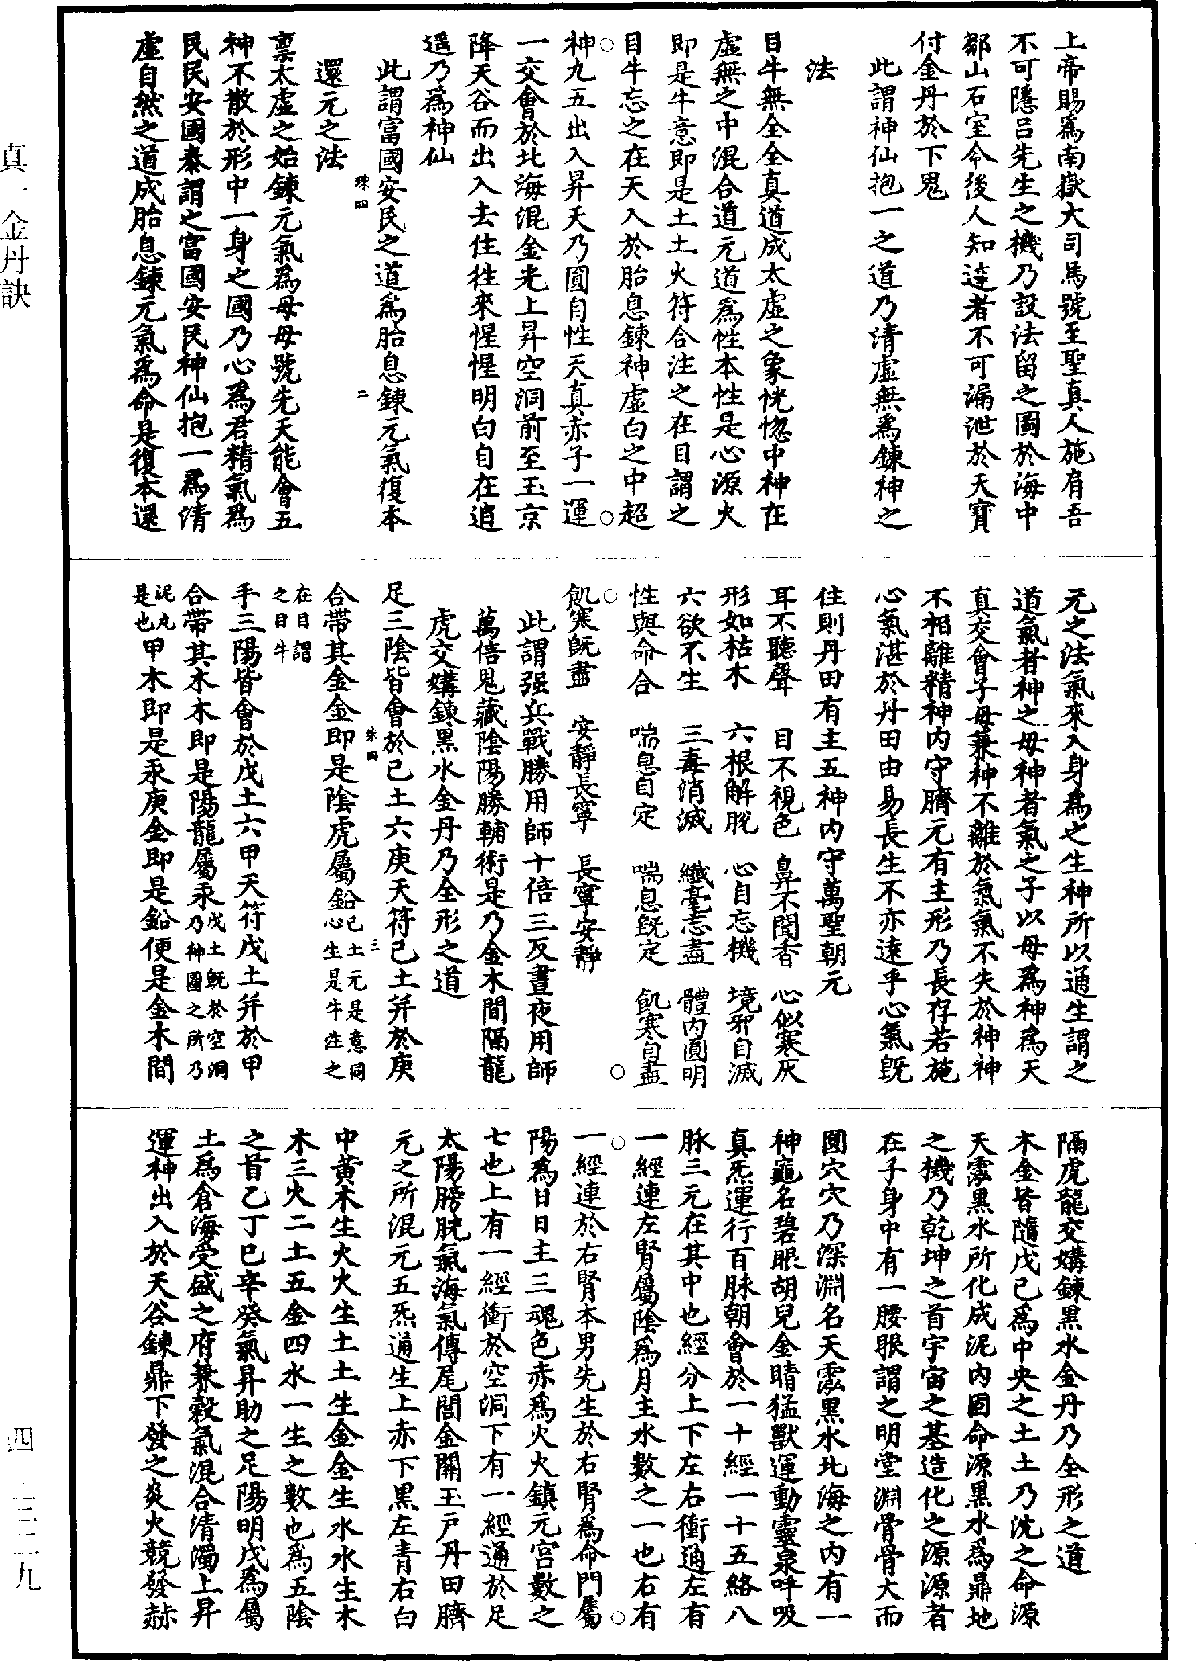 上帝賜為南嶽大司馬號至聖真人施肩吾
不可隱呂先生之機乃設法留之圖於海中
鄒山石室令後人知達者不可漏泄於天寶
付金丹於下鬼
此謂神仙抱一之道乃清虛無為鍊神之
法
目牛無全全真道成太虛之象恍惚中神在
虛無之中混合道元道為性本性是心源火
即是牛意即是土土火符合注之在目謂之
目牛忘之在天入於胎息鍊神虛白之中超
神九五出入昇天乃圓自性天真赤子一運
一交會於北海混金光上昇空洞前至玉京
降天谷而出入去住往來惺惺明白自在逍
遥乃為神仙
此謂富國安民之道為胎息鍊元氣復本
還元之法
稟太虛之始鍊元氣為母母號先天能會五
神不散於形中一身之國乃心為君精氣為
民民安國泰謂之富國安民神仙抱一為清
虛自然之道成胎息鍊元氣為命是復本還
元之法氣來入身為之生神所以通生謂之
道氣者神之母神者氣之子以母為神為天
真交會子母兼神不離於氣氣不失於神神
不相離精神內守臍元有主形乃長存若施
心氣湛於丹田由易長生不亦遠乎心氣旣
住則丹田有主五神內守萬聖朝元
耳不聽聲 目不視色 鼻不聞香 心似寒灰
形如枯木 六根解脫 心自忘機 境邪自滅
六欲不生 三毒消滅 纖毫志盡 體內圓明
性與命合 喘息自定 喘息旣定 飢寒自盡
飢寒旣盡 安靜長寧 長寧安靜
此謂强兵戰勝用師十倍三反晝夜用師
萬倍鬼藏陰陽勝輔術是乃金木間隔龍
虎交媾鍊黑水金丹乃全形之道
足三陰皆會於己土六庚天符己土并於庚
合帶其金金即是陰虎屬鉛己土元是意同心生是牛注之
在目謂之目牛
手三陽皆會於戊土六甲天符戊土并於甲
合帶其木木即是陽龍屬汞戊土旣於空洞乃神圖之所乃
泥丸是也甲木即是汞庚金即是鉛便是金木間
隔虎龍交媾鍊黑水金丹乃全形之道
木金皆隨戊己為中央之土土乃沈之命源
天霐黑水所化成泥內固命源黑水為鼎地
之機乃乾坤之首宇宙之基造化之源源者
在于身中有一腰眼謂之明堂淵骨骨大而
圓穴穴乃深淵名天霐黑水北海之內有一
神龜名碧眼胡兒金睛猛獸運動靈泉呼吸
真炁運行百脉朝會於一十經一十五絡八
脉三元在其中也經分上下左右衝通左有
一經連左腎屬陰為月主水數之一也右有
一經連於右腎本男先生於右腎為命門屬
陽為日日主三魂色赤為火火鎮元宮數之
七也上有一經衝於空洞下有一經通於足
太陽膀胱氣海氣傳尾閭金關玉戶丹田臍
元之所混元五炁通生上赤下黑左青右白
中黄木生火火生土土生金金生水水生木
木三火二土五金四水一生之數也為五陰
之首乙丁巳辛癸氣昇助之足陽明戊為屬
土為倉海受盛之府兼穀氣混合清濁上昇
運神出入於天谷鍊鼎下發之炎火競發赫
真一金丹訣
珠四
二
珠四
三
四
三二九